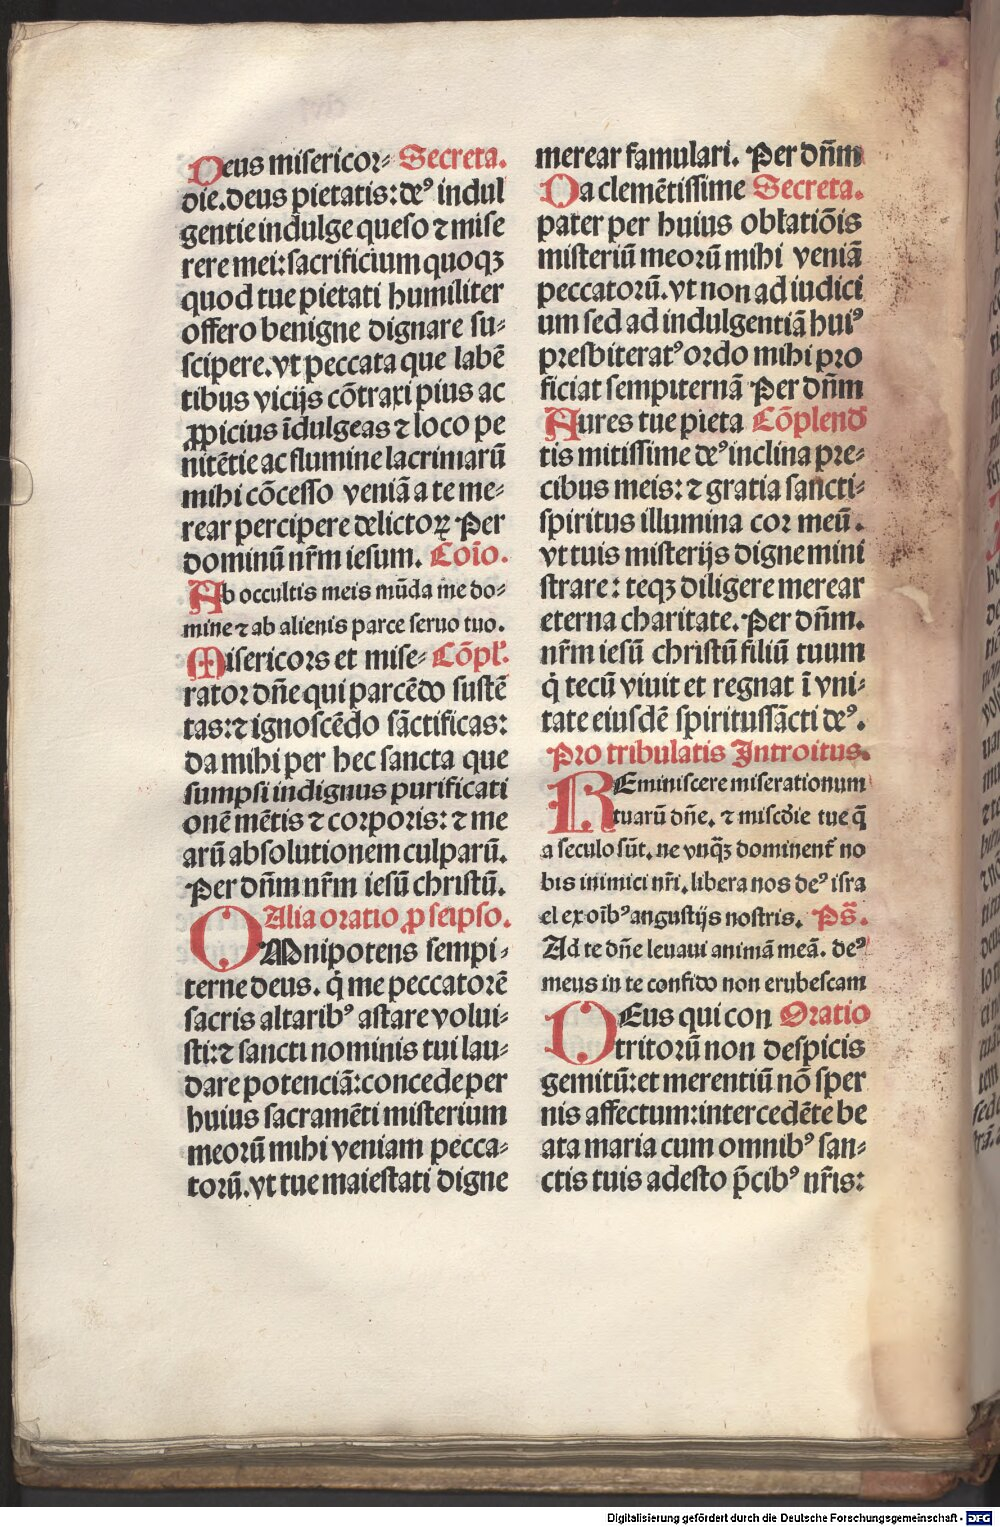 Deus misericor⸗ Secreta.
die. deus pietatis: deꝰ indul
gentie indulge queso ⁊ mise
rere mei: sacrificium quoqꝫ
quod tue pietati humiliter
offero benigne dignare su⸗
scipere. vt peccata que labē
tibus vicijs cōtraxi pius ac
ꝓpicius īdulgeas ⁊ loco pe
nitētie ac flumine lacrimarū
mihi cōcesso veniā a te me⸗
rear percipere delictoꝝ Per
dominū nr̄m iesum. Coīo.
Ab occultis meis mūda me do⸗
mine ⁊ ab alienis parce seruo tuo.
Misericors et mise⸗ Cōpl'.
rator dn̄e qui parcēdo sustē
tas: ⁊ ignoscēdo sāctificas:
da mihi per hec sancta que
sumpsi indignus purificati
onē mētis ⁊ corporis: ⁊ me
arū absolutionem culparū.
Per dn̄m nr̄m iesū christū.
Alia oratio ꝓ seipso.
OMnipotens sempi⸗
terne deus. q̇ me peccatorē
sacris altaribꝰ astare volui⸗
sti: ⁊ sancti nominis tui lau⸗
dare potenciā: concede per
huius sacramēti misterium
meorū mihi veniam pecca⸗
torū. vt tue maiestati digne
merear famulari. Per dn̄m
Da clemētissime Secreta.
pater per huius oblatiōis
misteriū meorū mihi veniā
peccatorū. vt non ad iudici
um sed ad indulgentiā huiꝰ
presbiteratꝰ ordo mihi pro
ficiat sempiternā Per dn̄m
Aures tue pieta Cōplend
tis mitissime deꝰ inclina pre⸗
cibus meis: ⁊ gratia sancti⸗
spiritus illumina cor meū.
vt tuis misterijs digne mini
strare: teqꝫ diligere merear
eterna charitate. Per dn̄m.
nr̄m iesū christū filiū tuum
q̇ tecū viuit et regnat ī vni⸗
tate eiusdē spiritussācti deꝰ.
Pro tribulatis Introitus.
REminiscere miserationum
tuarū dn̄e. ⁊ misc̄die tue q̄
a seculo sūt. ne vnq̄ꝫ dominent᷑ no
bis inimici nr̄i. libera nos deꝰ isra
el ex oībꝰ angustijs nostris. Ps̄.
Ad te dn̄e leuaui animā meā. deꝰ
meus in te confido non erubescam
DEus qui con Oratio
tritorū non despicis
gemitū: et merentiū nō sper
nis affectum: intercedēte be
ata maria cum omnibꝰ san⸗
ctis tuis adesto p̄cibꝰ nr̄is:
Digitalisierung gefördert durch die Deutsche Forschungsgemeinschaft - DFG